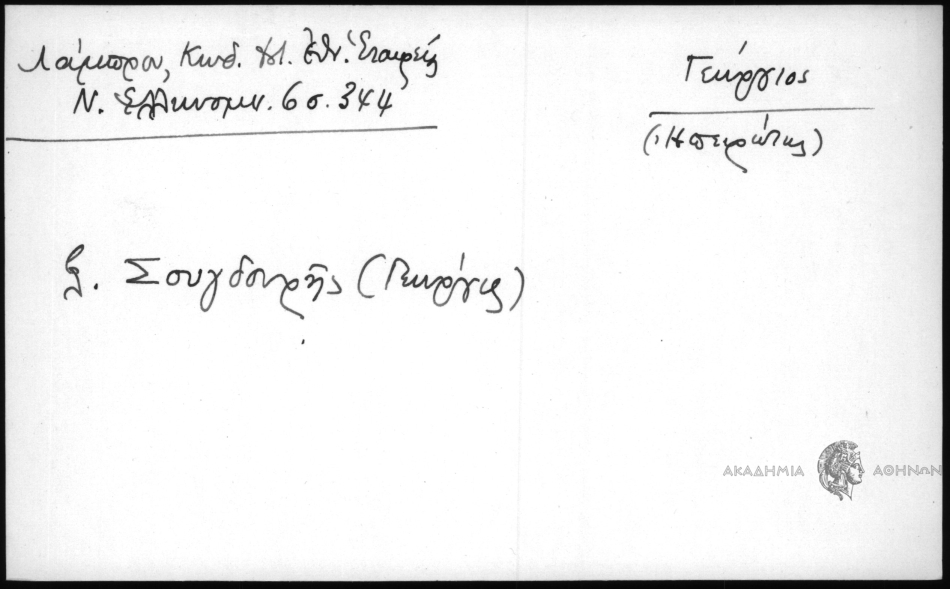 Λάμπρου, Κωδ. Ἱστ. Ἐθν. Ἑταιρείας
Ν. Ἑλληνομν. 6 σ. 344
Γεώργιος
(Ἠπειρώτης)
Σουγδουρῆς (Γεώργιος)
ΑΚΑΔΗΜΙΑ ΑΘΗΝΩΝ